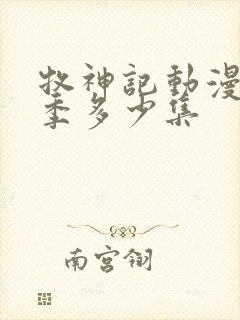 牧神記動漫
季多少集
南宮翎